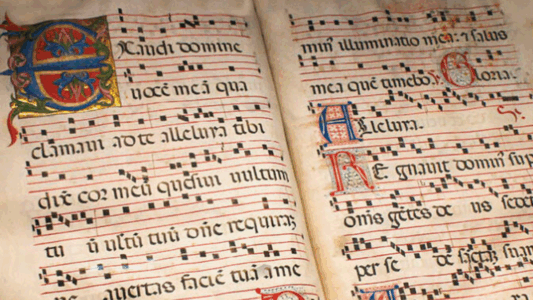 Exaudi domine
vocē meā qua
clamavi ad te alleluya tibi
dix̄ cor meū quesivi vultum
tu ū vultū tuū dn̄e requirā
ne avertas faciē tuā a me
minꝰ illuminatio mea: ⁊ salus
mea quē timebo Gloria.
Alleluya.
Regnavit dominꝰ sup
om̄s gētes de us sedet
per se de sanctā suam